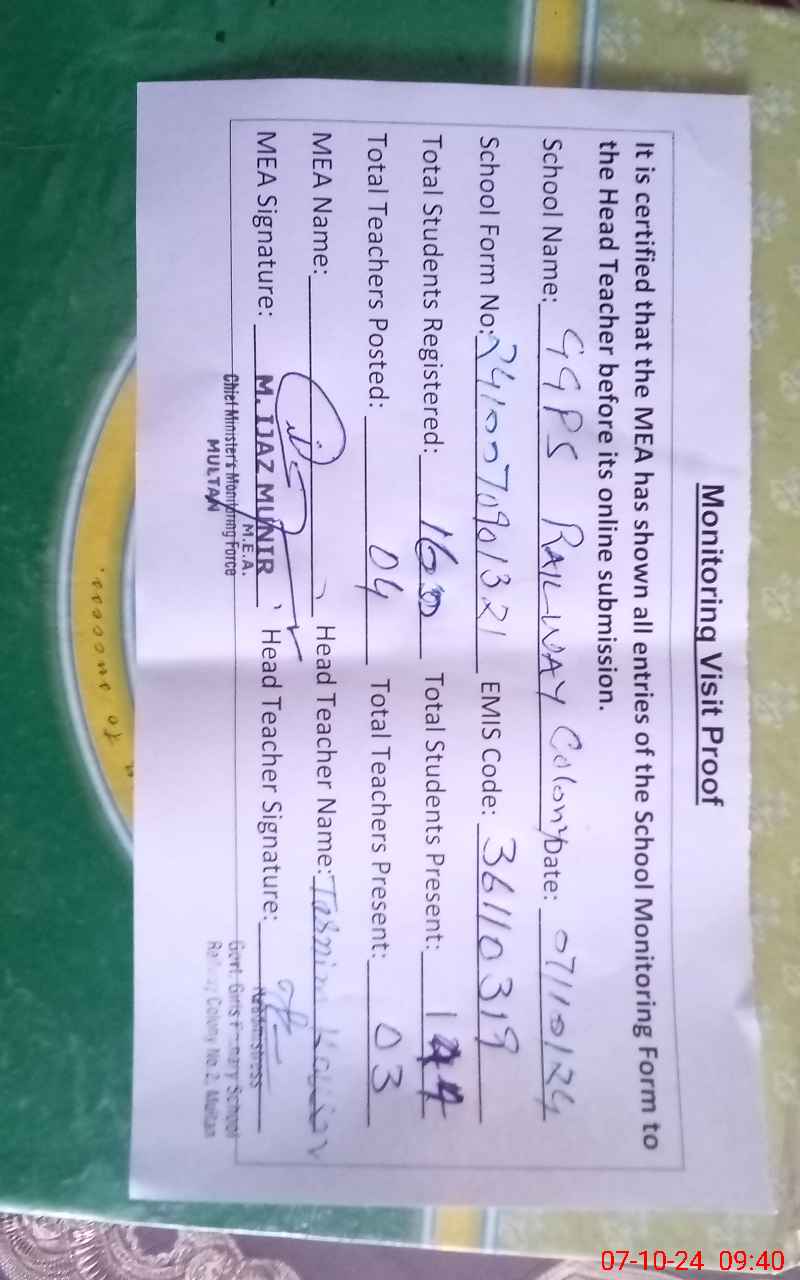 Monitoring Visit Proof
It is certified that the MEA has shown all entries of the School Monitoring Form to
the Head Teacher before its online submission.
School Name: GGPS RAILWAY Colony Date: 07/10/24
School Form No: 2410070901321 EMIS Code: 36110319
Total Students Registered: 160 Total Students Present: 144
Total Teachers Posted: 04 Total Teachers Present: 03
MEA Name: Head Teacher Name: Tasnim Kousar
MEA Signature: M. IJAZ MUNIR Head Teacher Signature: Headmistress
M.E.A.
Chief Minister's Monitoring Force
MULTAN
Govt. Girls Primary School
Railway Colony No. 2, Multan
07-10-24 09:40